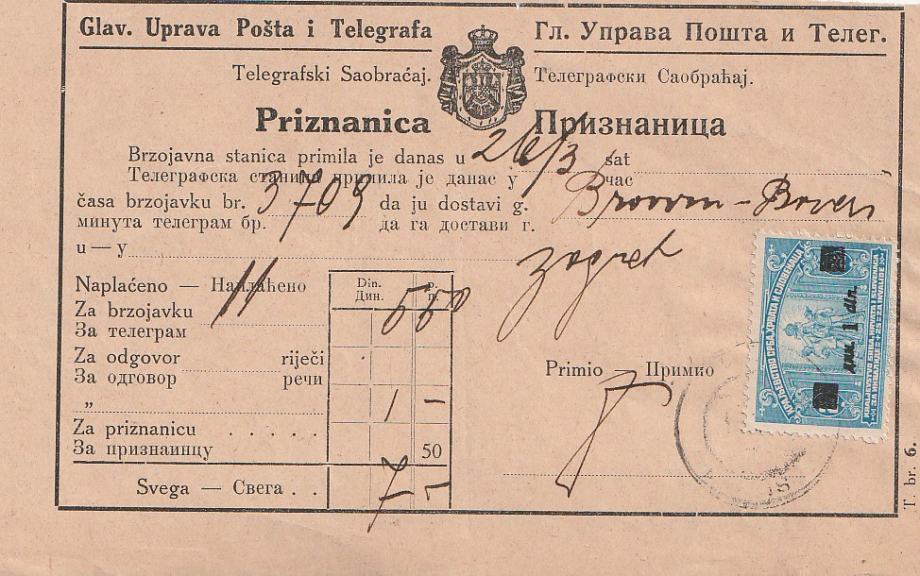 Glav. Uprava Pošta i Telegrafa
Гл. Управа Пошта и Телег.
Telegrafski Saobraćaj.
Телеграфски Саобраћај.
Priznanica
Признаница
Brzojavna stanica primila je danas u 26/3 sat
Телеграфска станица примила је данас у час
časa brzojavku br. 3709 da ju dostavi g. Brown-Boveri
минута телеграм бр. да га достави г.
u — у Zagreb
Naplaćeno — Наплаћено
Din. p.
Дин. п.
Za brzojavku 11 5 50
За телеграм
Za odgovor riječi
За одговор речи
„ 1 –
Za priznanicu . . . . .
За признаницу 50
Svega — Свега . . 7 –
Primio — Примио
КРАЉЕВСТВО СРБА, ХРВАТА И СЛОВЕНАЦА
1 din.
T. br. 6.